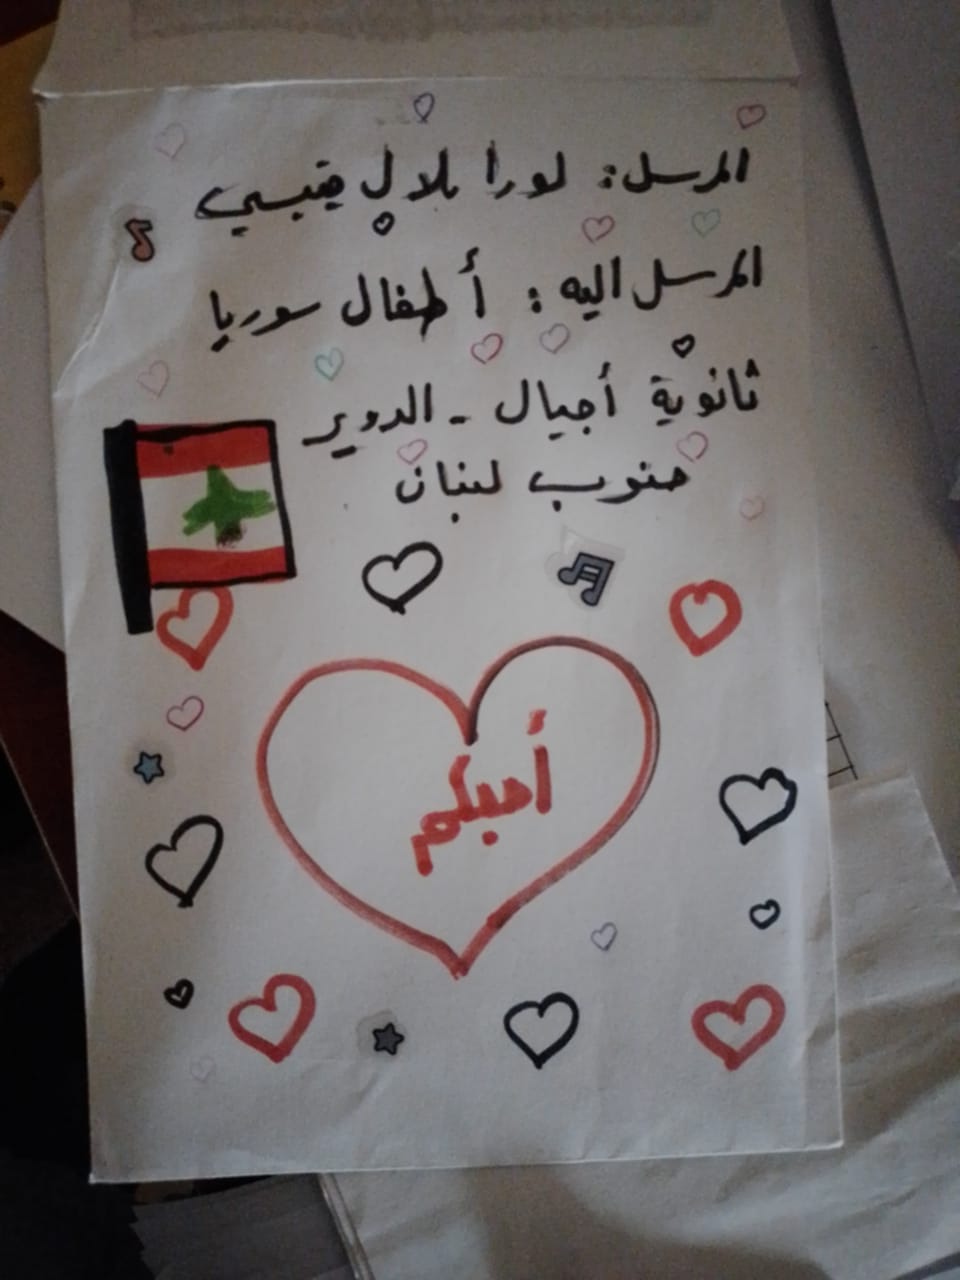 المرسل: لورا بلال قبيسي
المرسل اليه: أطفال سوريا
ثانوية أجيال - الدوير
جنوب لبنان
أحبكم